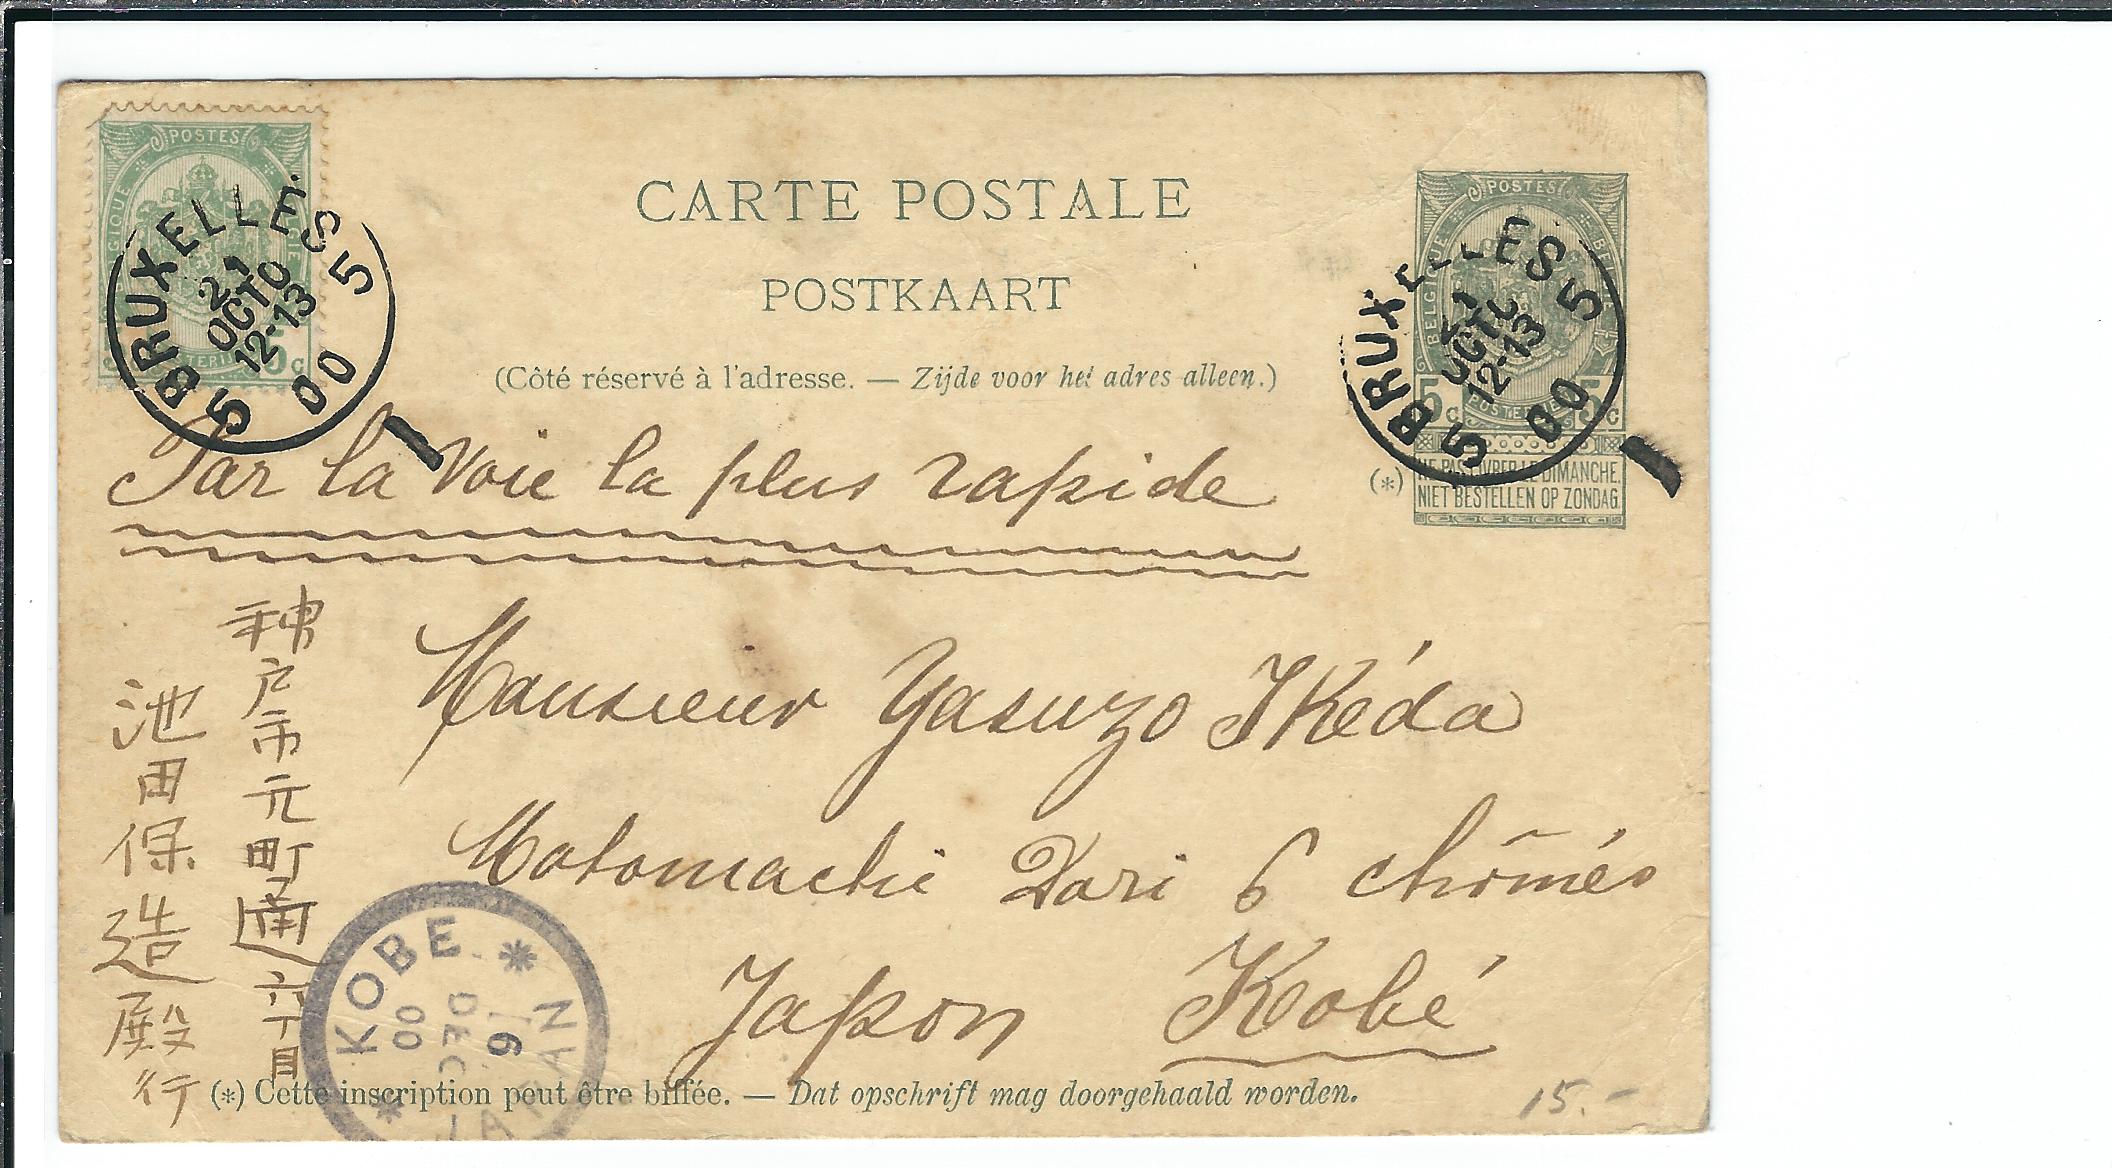 POSTES
BELGIQUE
5 c
BRUXELLES 5
21
OCTO
12-13
5 00
CARTE POSTALE
POSTKAART
(Côté réservé à l'adresse. — Zijde voor het adres alleen.)
POSTES
BELGIQUE
5 c POSTERIJEN 5 c
BRUXELLES 5
21
OCTO
12-13
5 00
(*) NE PAS LIVRER LE DIMANCHE.
NIET BESTELLEN OP ZONDAG
Par la Voie la plus rapide
Monsieur Yasuzo Ikéda
Motomachi Dori 6 chômés
Japon Kobé
神戸市元町通六丁目
池田保造殿行
KOBE
JAPAN
16
DEC
00
(*) Cette inscription peut être biffée. — Dat opschrift mag doorgehaald worden.
15.-